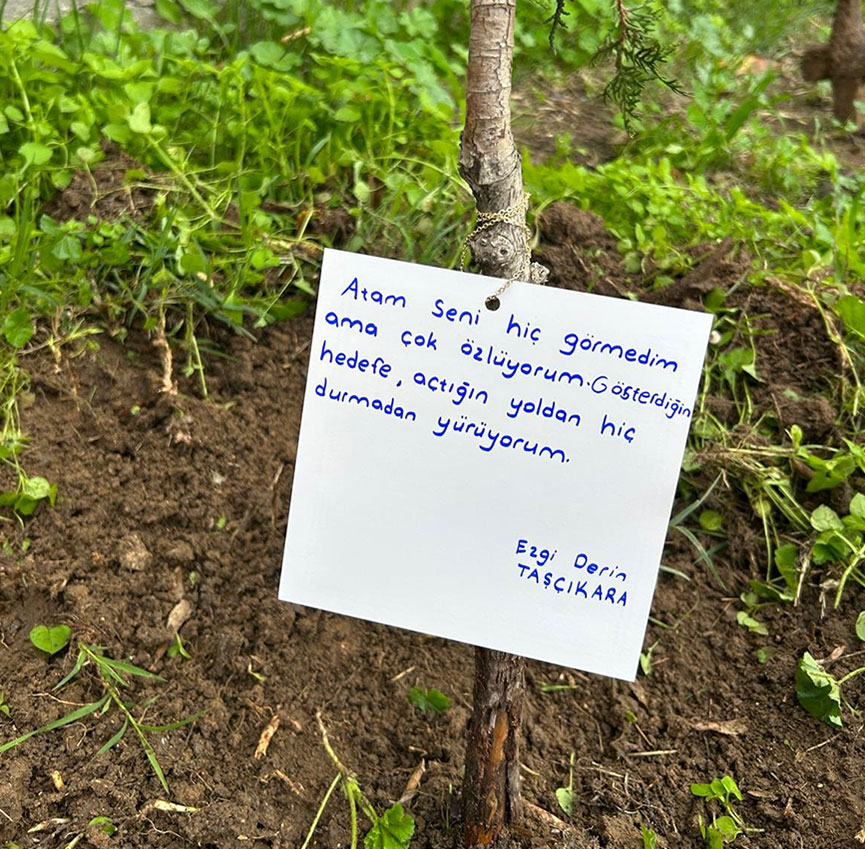 Atam seni hiç görmedim
ama çok özlüyorum. Gösterdiğin
hedefe, açtığın yoldan hiç
durmadan yürüyorum.
Ezgi Derin
TAŞÇIKARA